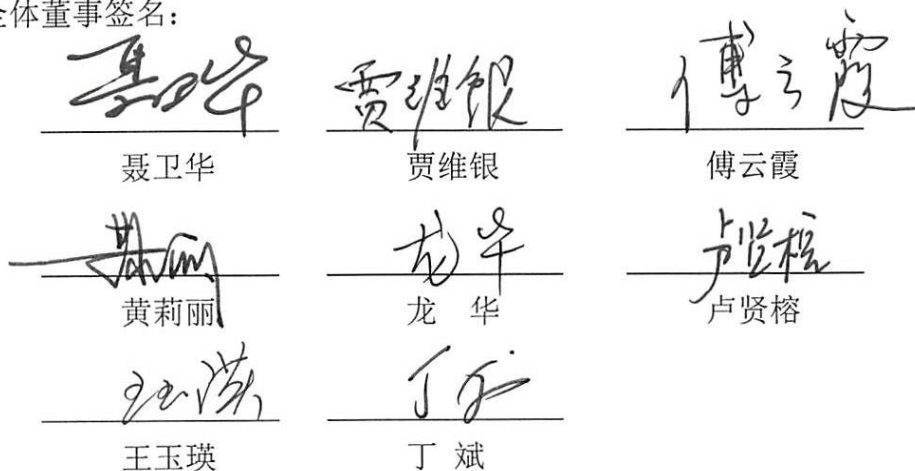 全体董事签名：
聂卫华 贾维银 傅云霞
聂卫华 贾维银 傅云霞
黄莉丽 龙华 卢贤榕
黄莉丽 龙 华 卢贤榕
王玉瑛 丁斌
王玉瑛 丁 斌